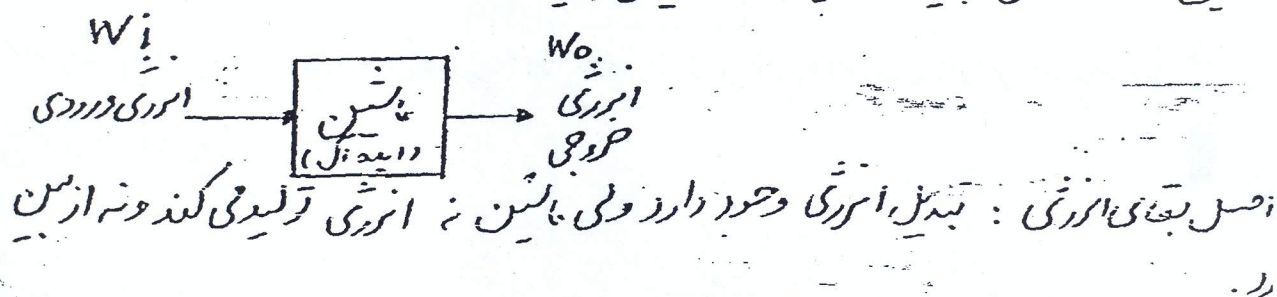 Wi
انرژی ورودی
ماشین
(ایده آل)
Wo
انرژی
خروجی
اصل بقای انرژی : تبدیل انرژی وجود دارد ولی ماشین نه انرژی تولید می کند و نه از بین